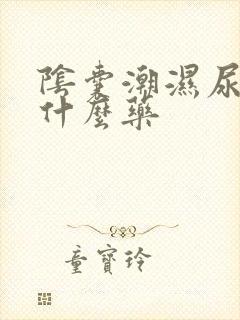 陰囊潮濕尿
什麼藥
童寶玲